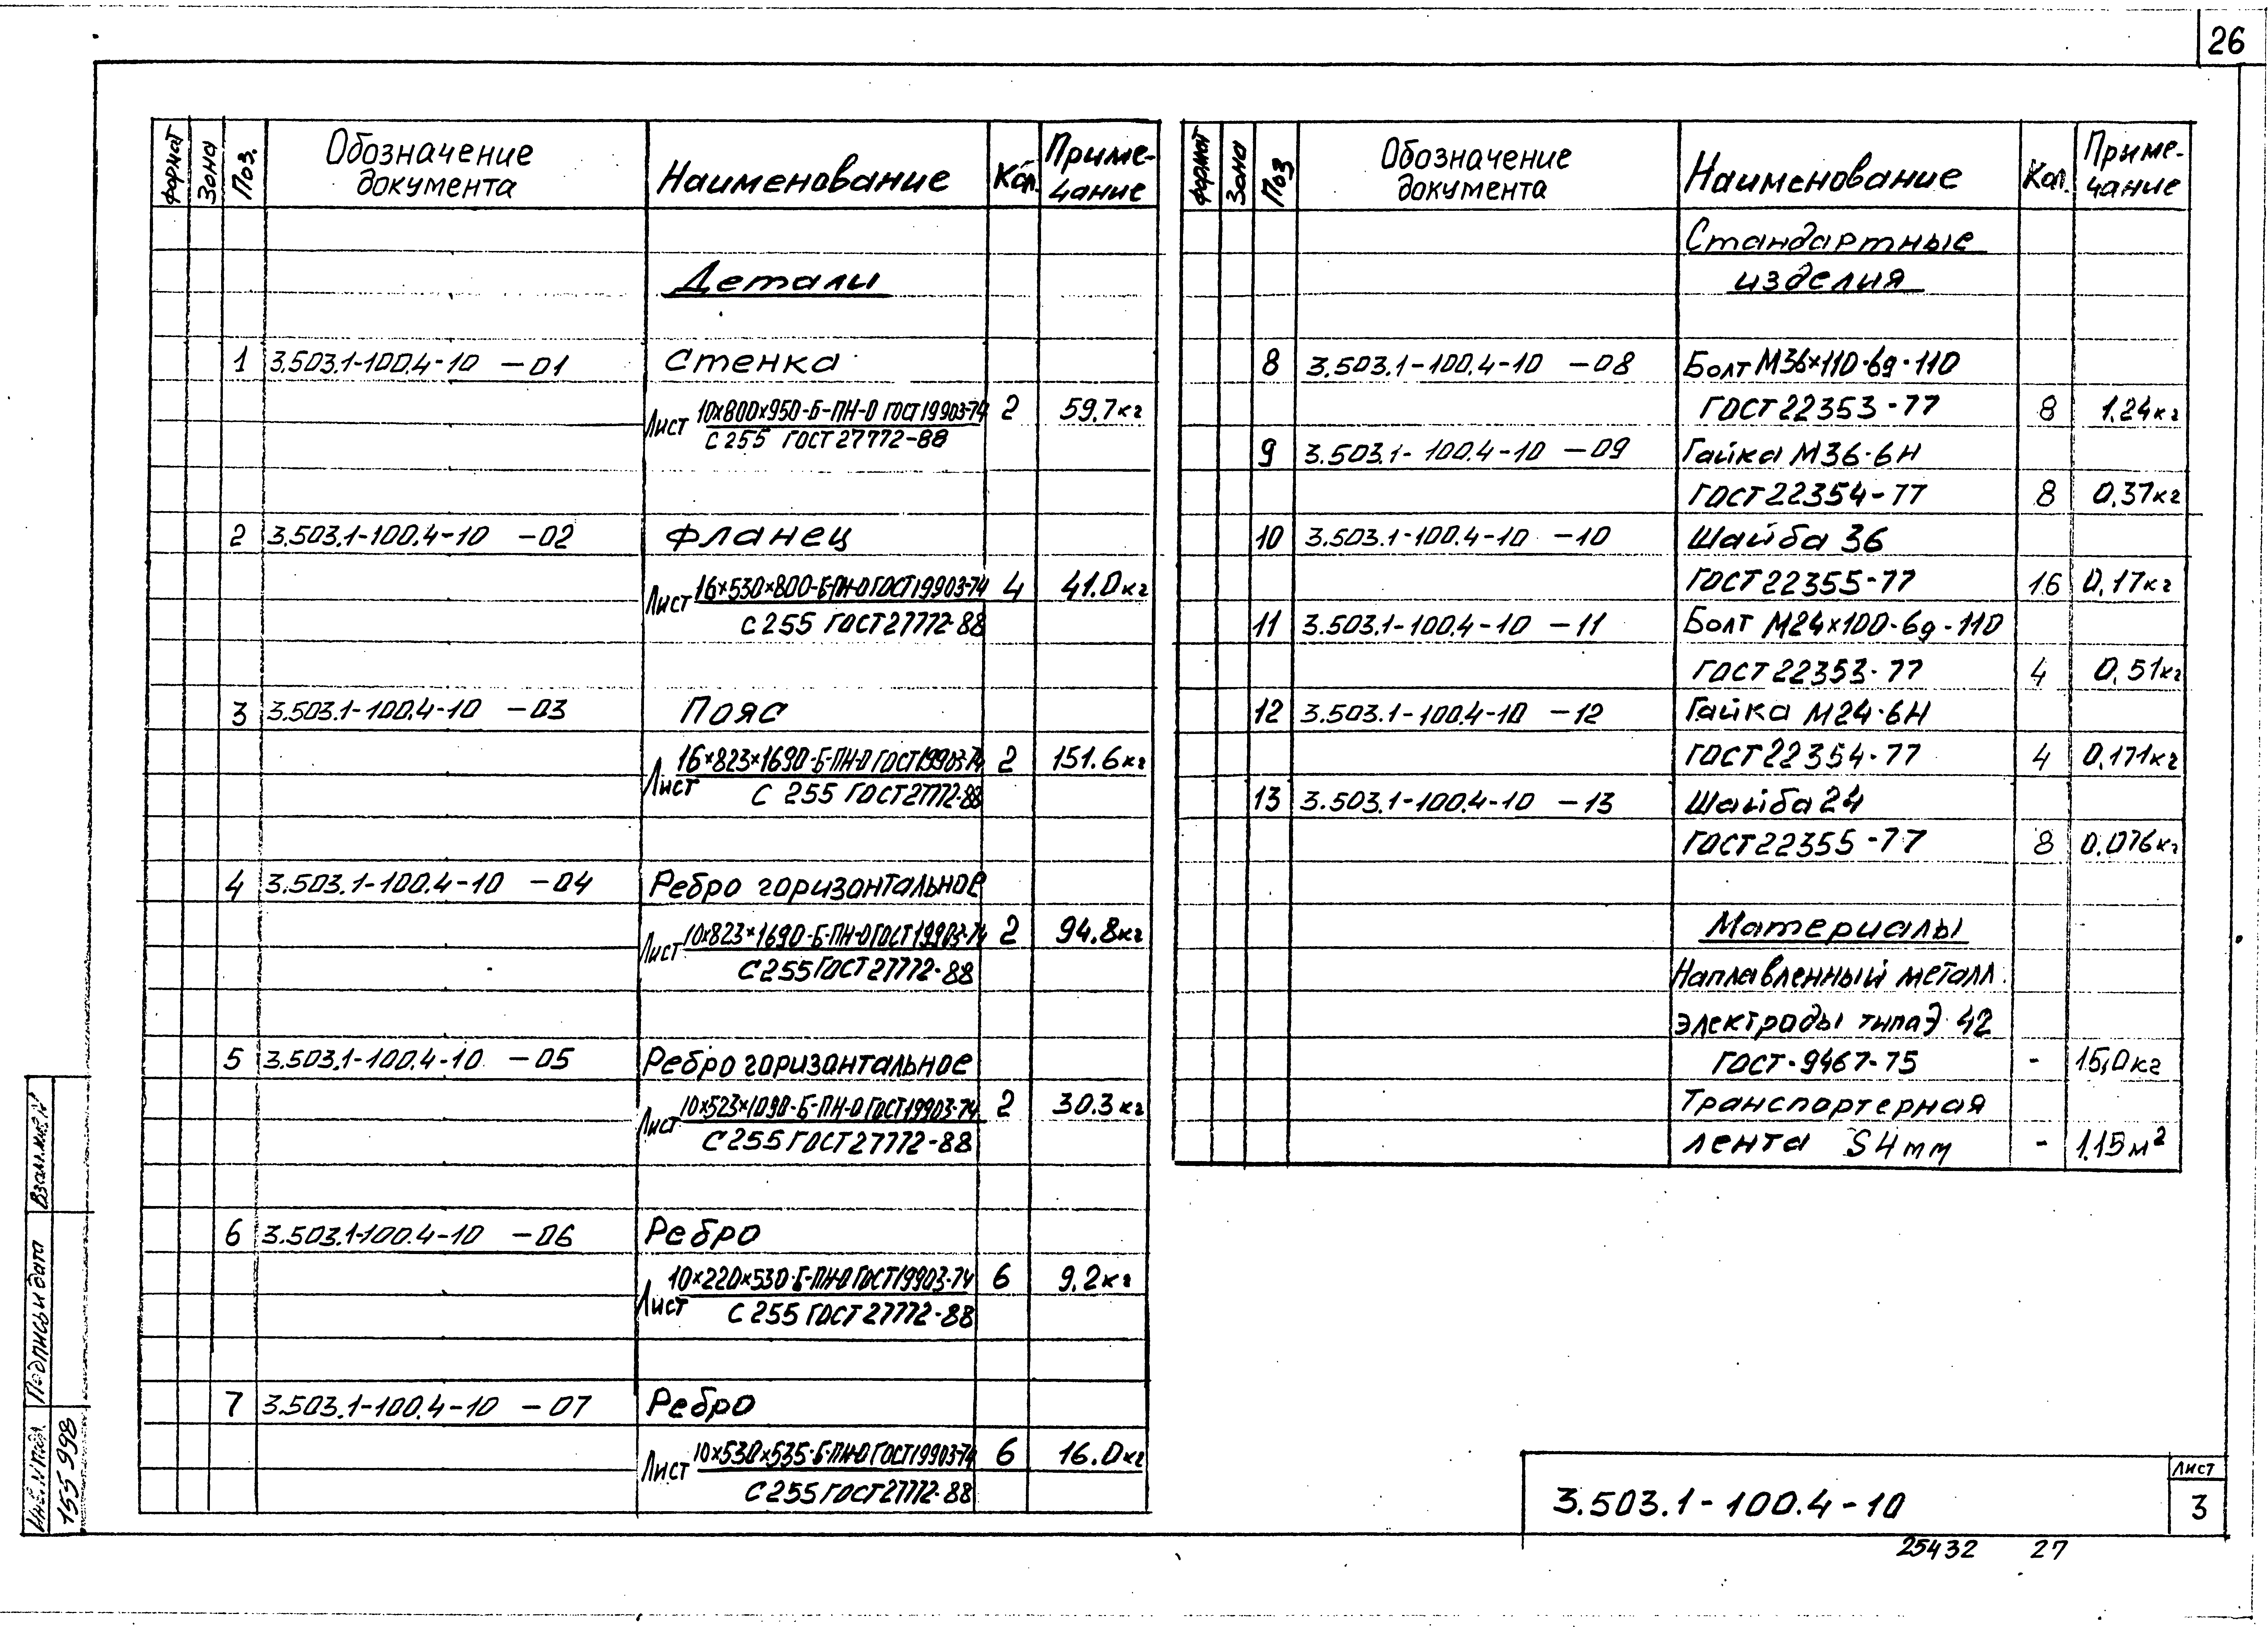 26
Формат Зона Поз. Обозначение документа Наименование Кол. Приме-чание
Детали
1 3.503.1-100.4-10 -01 Стенка
Лист 10х800х950-Б-ПН-О ГОСТ19903-74 2 59.7кг
С 255 ГОСТ 27772-88
2 3.503.1-100.4-10 -02 Фланец
Лист 16×530×800-Б-ПН-О ГОСТ19903-74 4 41.0кг
С 255 ГОСТ27772-88
3 3.503.1-100.4-10 -03 Пояс
Лист 16×823×1690-Б-ПН-О ГОСТ19903-74 2 151.6кг
С 255 ГОСТ27772-88
4 3.503.1-100.4-10 -04 Ребро горизонтальное
Лист 10×823×1690-Б-ПН-О ГОСТ19903-74 2 94.8кг
С255 ГОСТ27772-88
5 3.503.1-100.4-10 -05 Ребро горизонтальное
Лист 10×523×1090-Б-ПН-О ГОСТ19903-74 2 30.3кг
С 255 ГОСТ27772-88
6 3.503.1-100.4-10 -06 Ребро
Лист 10×220×530-Б-ПН-О ГОСТ19903-74 6 9.2кг
С 255 ГОСТ27772-88
7 3.503.1-100.4-10 -07 Ребро
Лист 10×530×535-Б-ПН-О ГОСТ19903-74 6 16.0кг
С255 ГОСТ27772-88
Формат Зона Поз Обозначение документа Наименование Кол. Приме-чание
Стандартные
изделия
8 3.503.1-100.4-10 -08 Болт М36×110-6g-110
ГОСТ22353-77 8 1.24кг
9 3.503.1-100.4-10 -09 Гайка М36-6Н
ГОСТ22354-77 8 0.37кг
10 3.503.1-100.4-10 -10 Шайба 36
ГОСТ22355-77 16 0.17кг
11 3.503.1-100.4-10 -11 Болт М24×100-6g-110
ГОСТ22353-77 4 0.51кг
12 3.503.1-100.4-10 -12 Гайка М24-6Н
ГОСТ22354-77 4 0.171кг
13 3.503.1-100.4-10 -13 Шайба 24
ГОСТ22355-77 8 0.076кг
Материалы
Наплавленный металл
электроды типа Э 42
ГОСТ-9467-75 - 15,0кг
Транспортерная
лента S 4мм - 1.15м²
Инв. N подл. Подпись и дата Взам.инв.N
155 998
3.503.1-100.4-10
Лист
3
25432 27